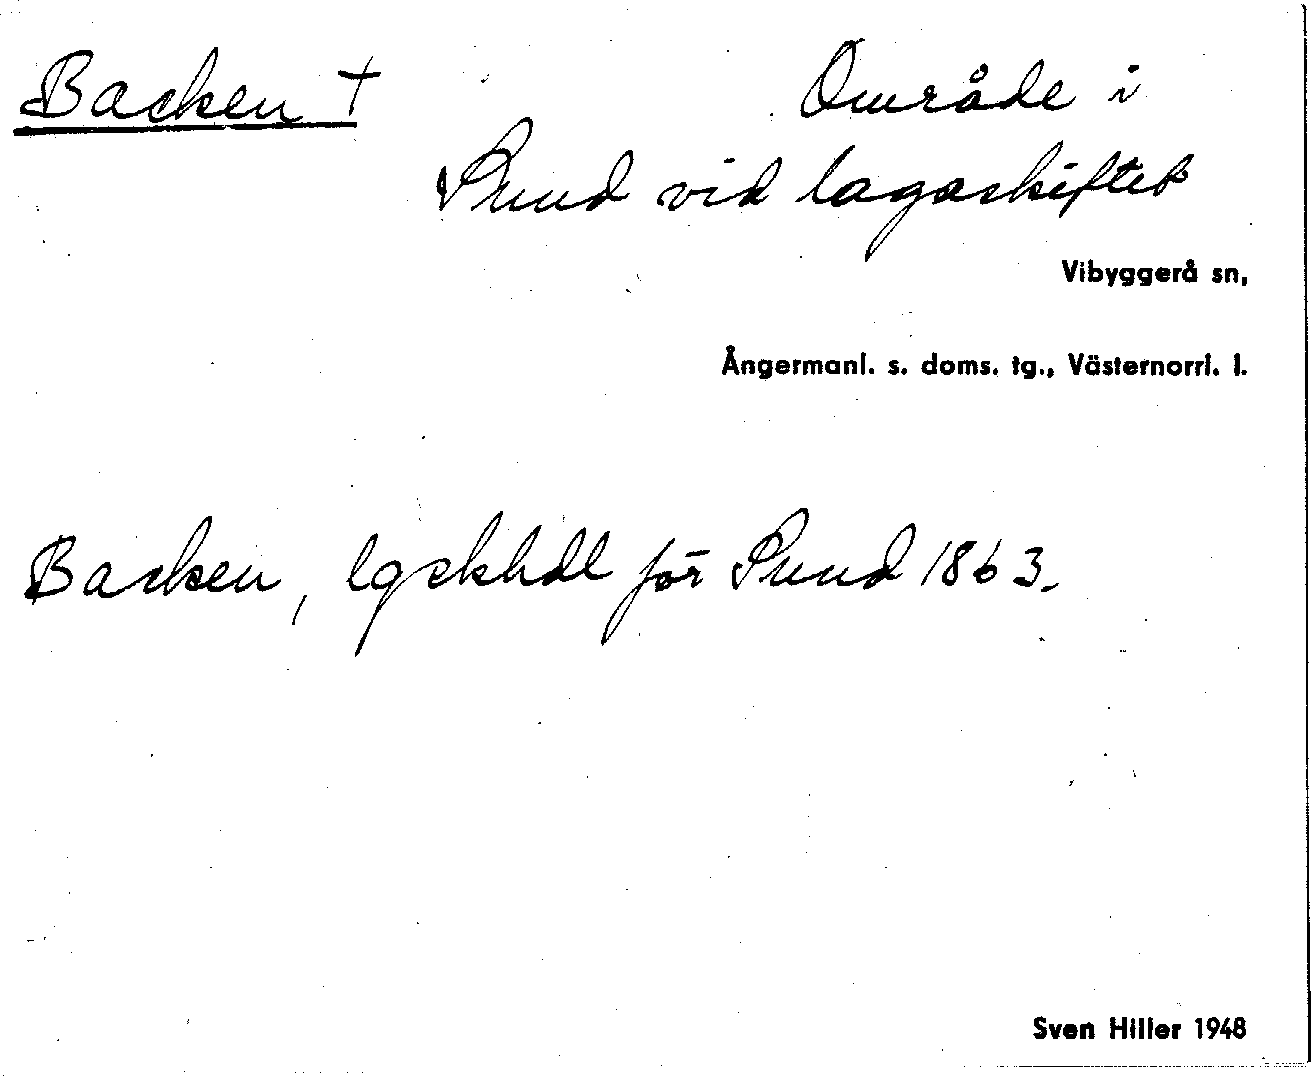 Backen †
Område i
Sund vid lagaskiftet
Vibyggerå sn,
Ångermanl. s. doms. tg., Västernorrl. l.
Backen, lgskhdl för Sund 1863.
Sven Hiller 1948